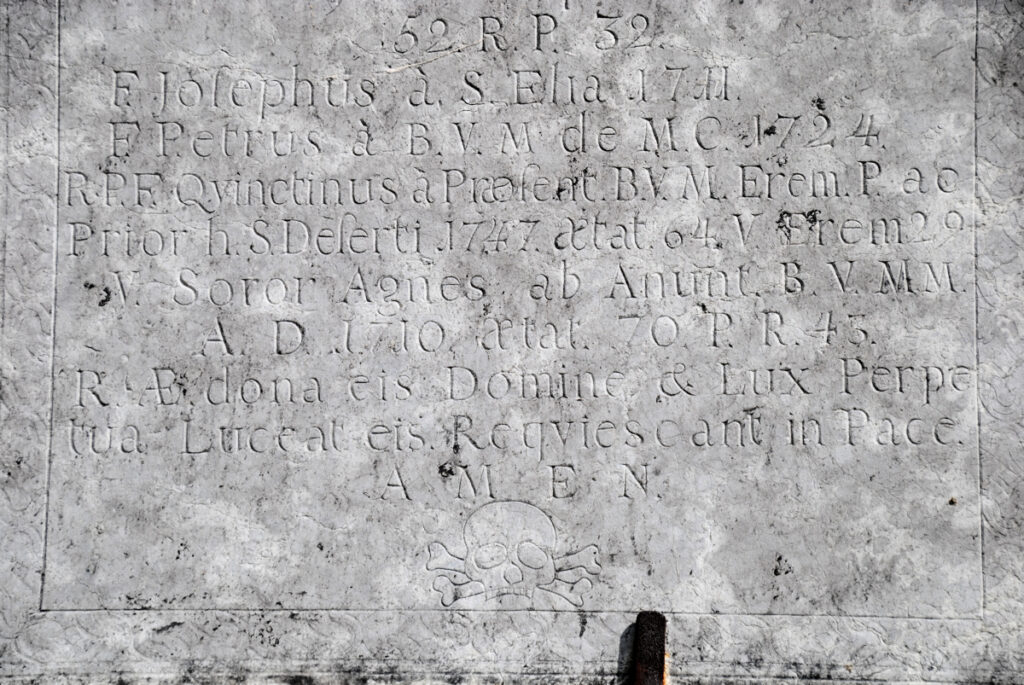 .52. R. P. 32.
F. Joſephus à. S. Elia .1711.
F. Petrus à B. V. M de M. C. 1724.
R.P.F. Qvinctinus à Præſent. B.V.M. Erem. P. ac
Prior h. S. Deſerti .1747. ætat. 64. V. Erem 29
V. Soror Agnes ab Anunt. B. V. M M.
A. D. 1710. ætat. 70 P. R. 43.
R. Æ dona eis Domine & Lux Perpe
tua Luceat eis. Reqviescant in Pace.
A M E N.